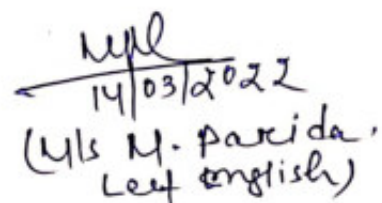 14/03/2022
(M/s M. Parida,
Lect English)